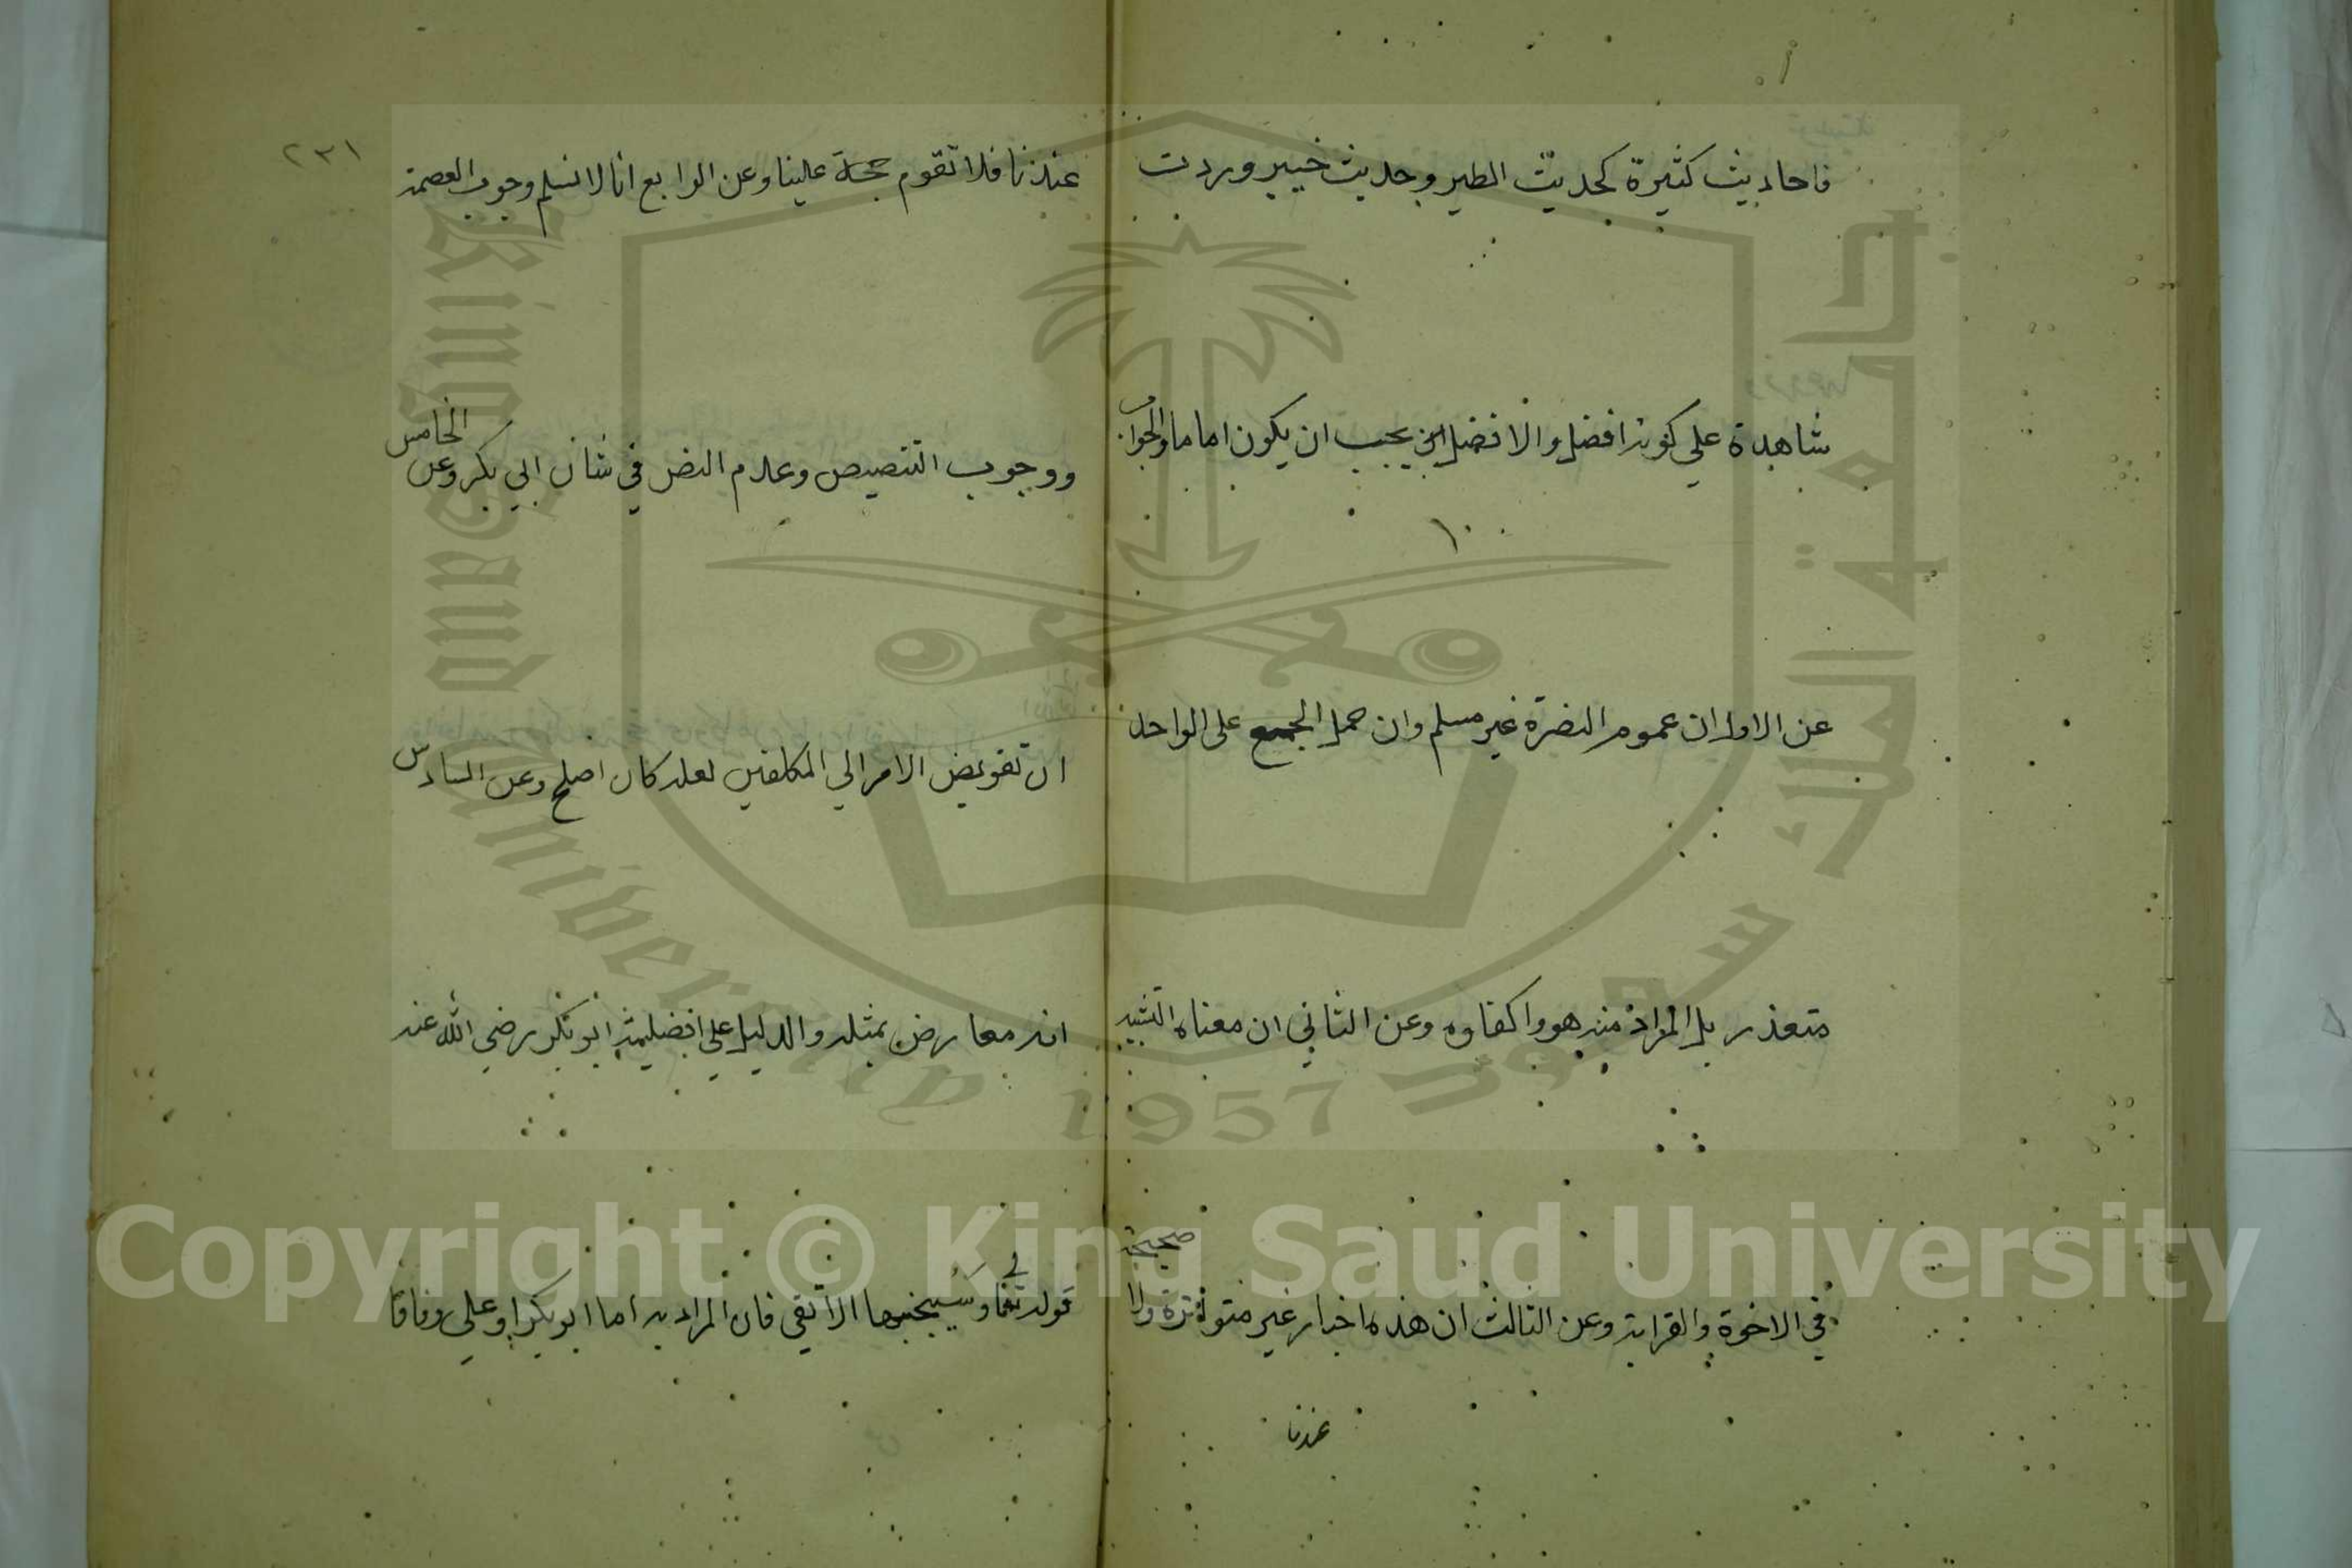 فاحاديث كثيرة كحديث الطير وحديث خيبر وردت
شاهدة علي كونه افضل والافضل يجب ان يكون اماما والجواب
عن الاول ان عموم النصرة غير مسلم وان حمل الجمع على الواحد
متعذر بل المراد منه هو واكفاوه وعن الثاني ان معناه التشبيه
في الاخوة والقرابة وعن الثالث ان هذه اخبار غير متواترة ولا صحيحة
عندنا
٢٣١
عندنا فلا تقوم حجة علينا وعن الرابع انا لا نسلم وجوب العصمة
ووجوب التنصيص وعدم النص في شان ابي بكر وعن الخامس
ان تفويض الامر الي المكلفين لعله كان اصلح وعن السادس
انه معارض بمثله والدليل علي افضلية ابو بكر رضي الله عنه
قوله تعالى وسيجنبها الاتقي فان المراد به اما ابو بكر او علي وفاقا
جامعة الملك سعود
King Saud University
1957
Copyright © King Saud University